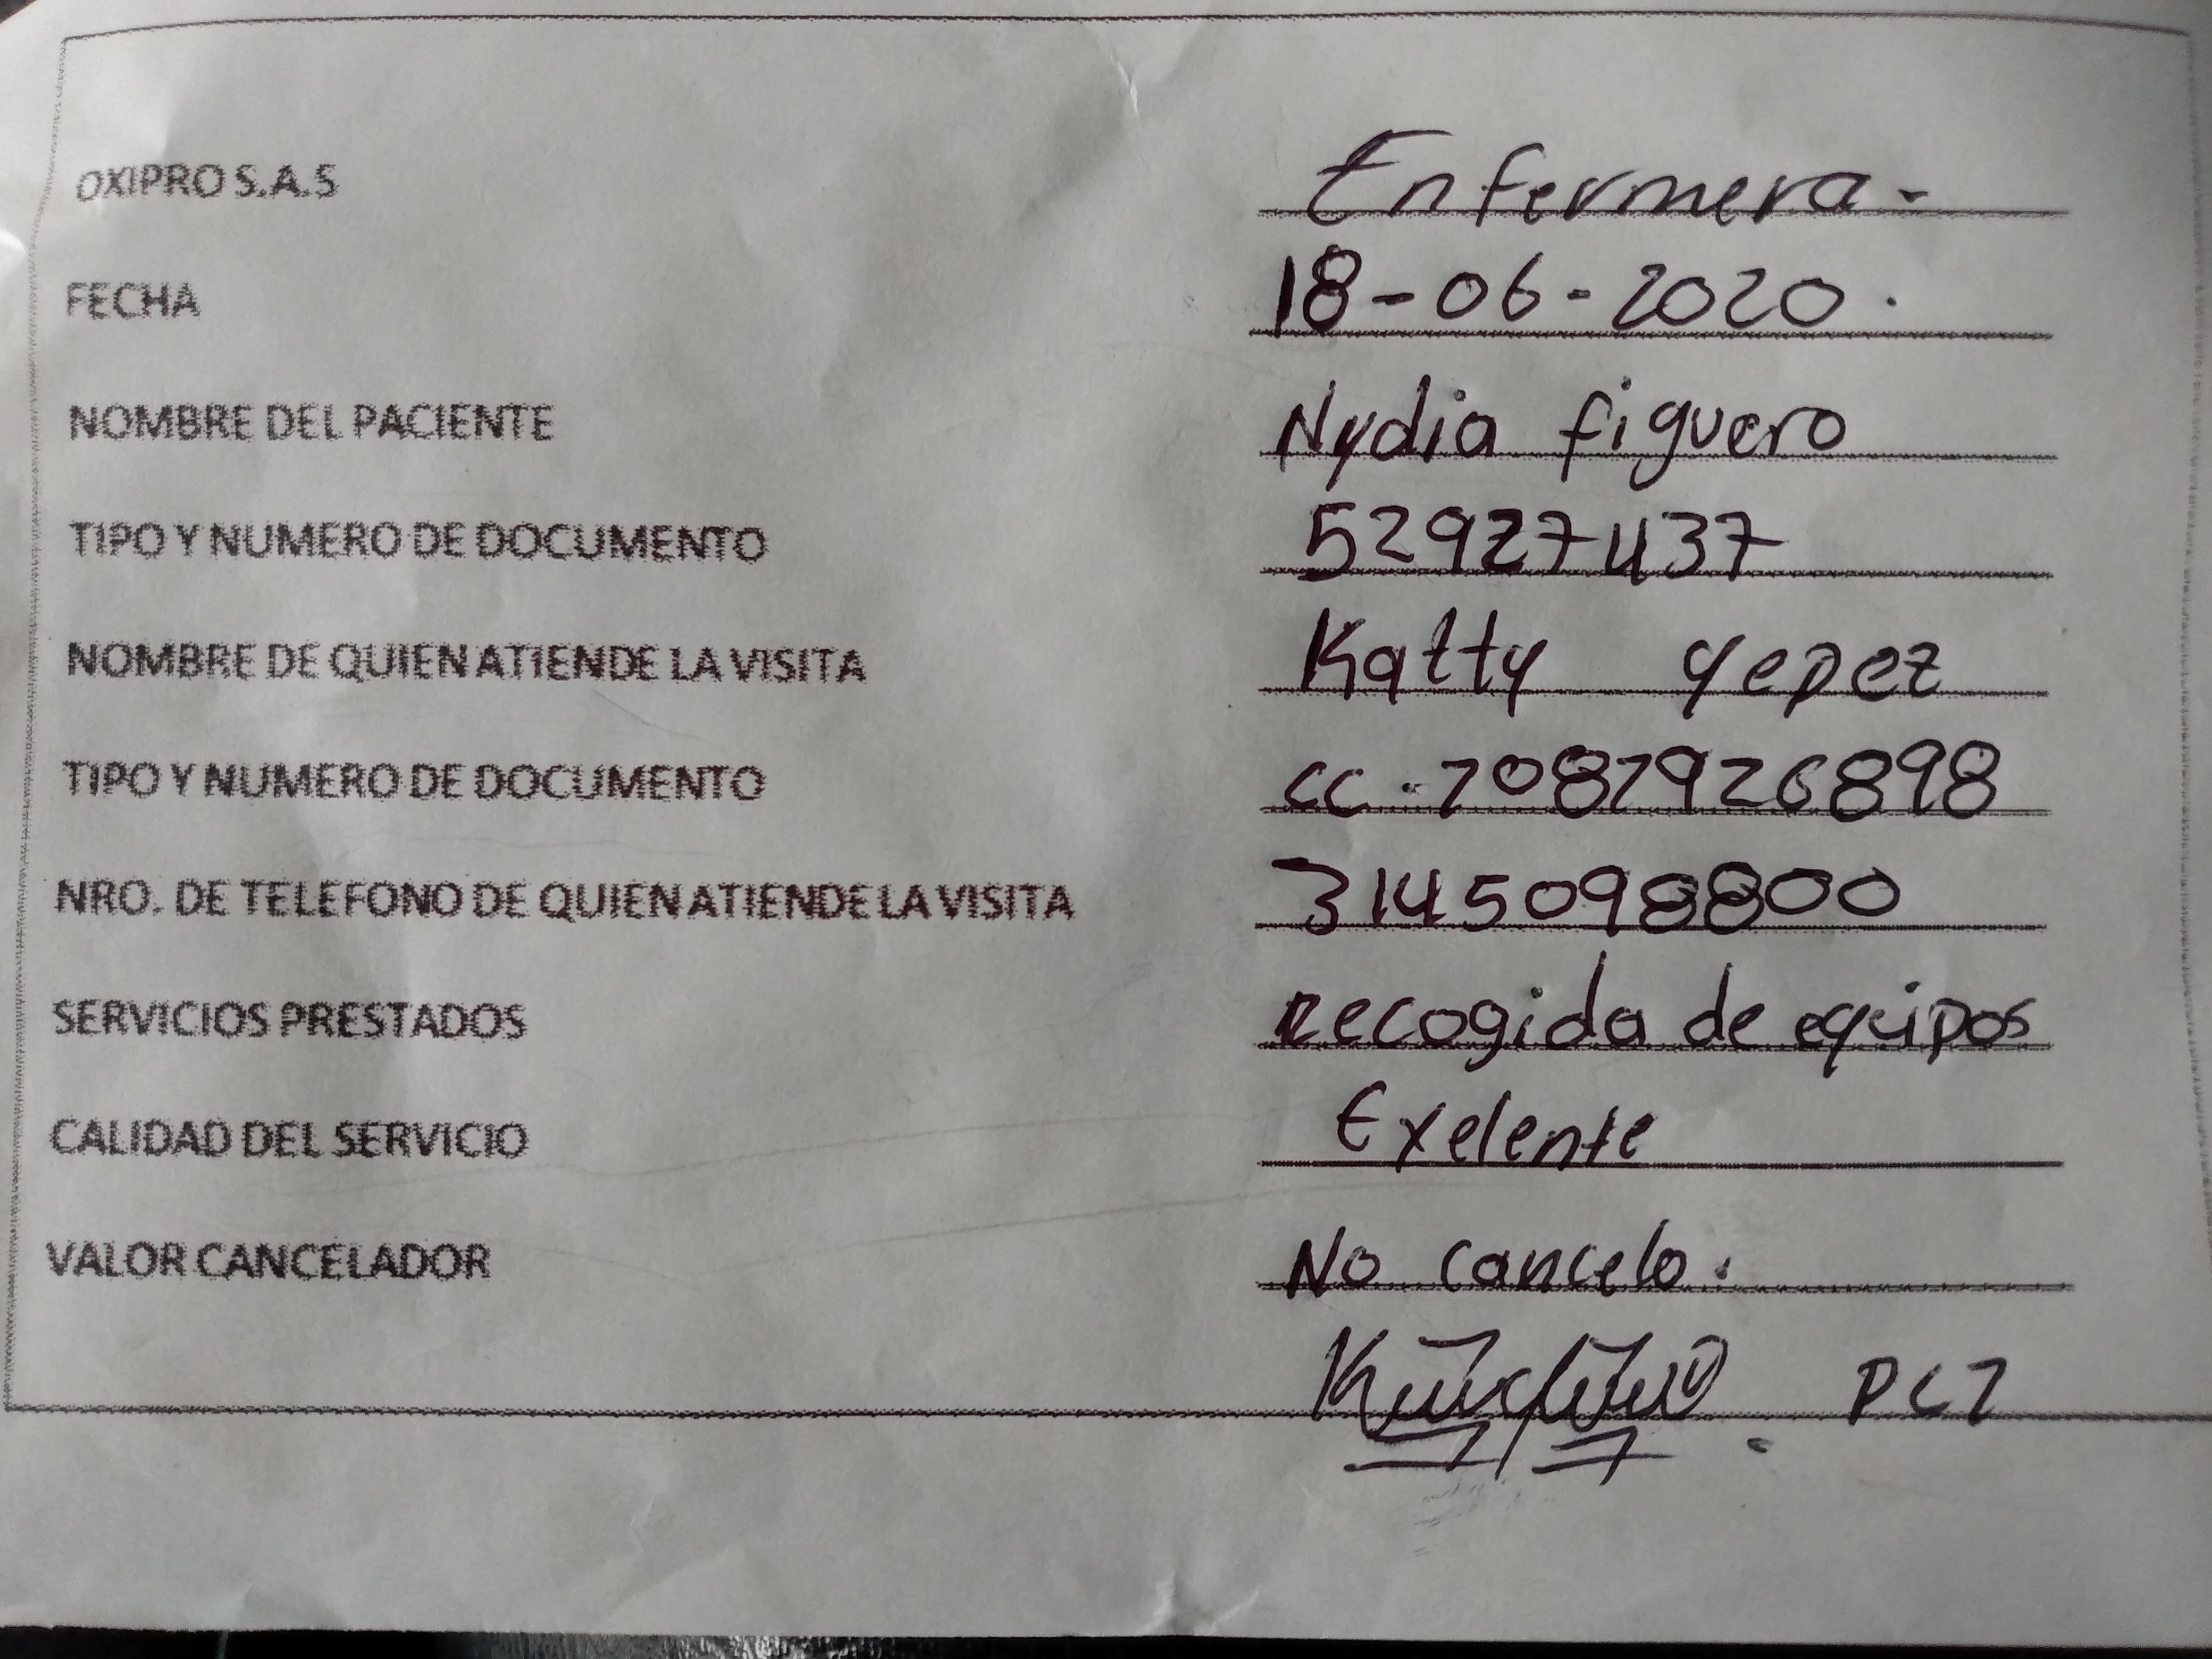 OXIPRO S.A.S Enfermera -
FECHA 18-06-2020.
NOMBRE DEL PACIENTE Nydia figuero
TIPO Y NUMERO DE DOCUMENTO 52927437
NOMBRE DE QUIEN ATIENDE LA VISITA Katty yepez
TIPO Y NUMERO DE DOCUMENTO cc. 70879268 98
NRO. DE TELEFONO DE QUIEN ATIENDE LA VISITA 3145098800
SERVICIOS PRESTADOS recogida de equipos
CALIDAD DEL SERVICIO Exelente
VALOR CANCELADOR No cancelo.